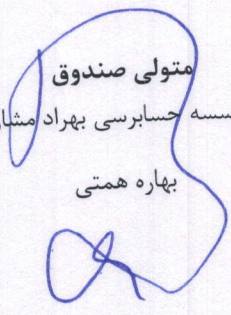 متولی صندوق
حسابرسی بهراد
بهاره همتی